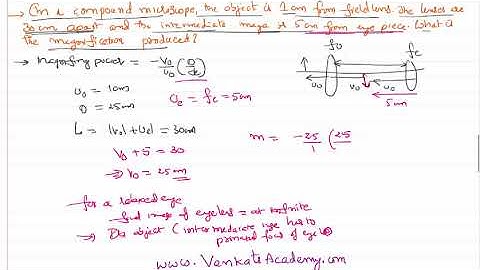 → In a compound microscope, the object is 1cm from field lens. The lenses are
30cm apart and the intermediate image is 5cm from eye piece. What is
the magnification produced?
→ Magnifying power = -V₀/u₀ (D/fe)
u₀ = 1cm
D = 25cm
Ue = fe = 5cm
L = |V₀| + |Ue| = 30cm
V₀ + 5 = 30
⇒ V₀ = 25cm
m = -25/1 (25
fo
fe
u₀ V₀ u₀
5cm
→ for a relaxed eye
final image of eyelens = at infinite
→ Its object (intermediate image has to
primary focus of eye
www.VenkatsAcademy.com